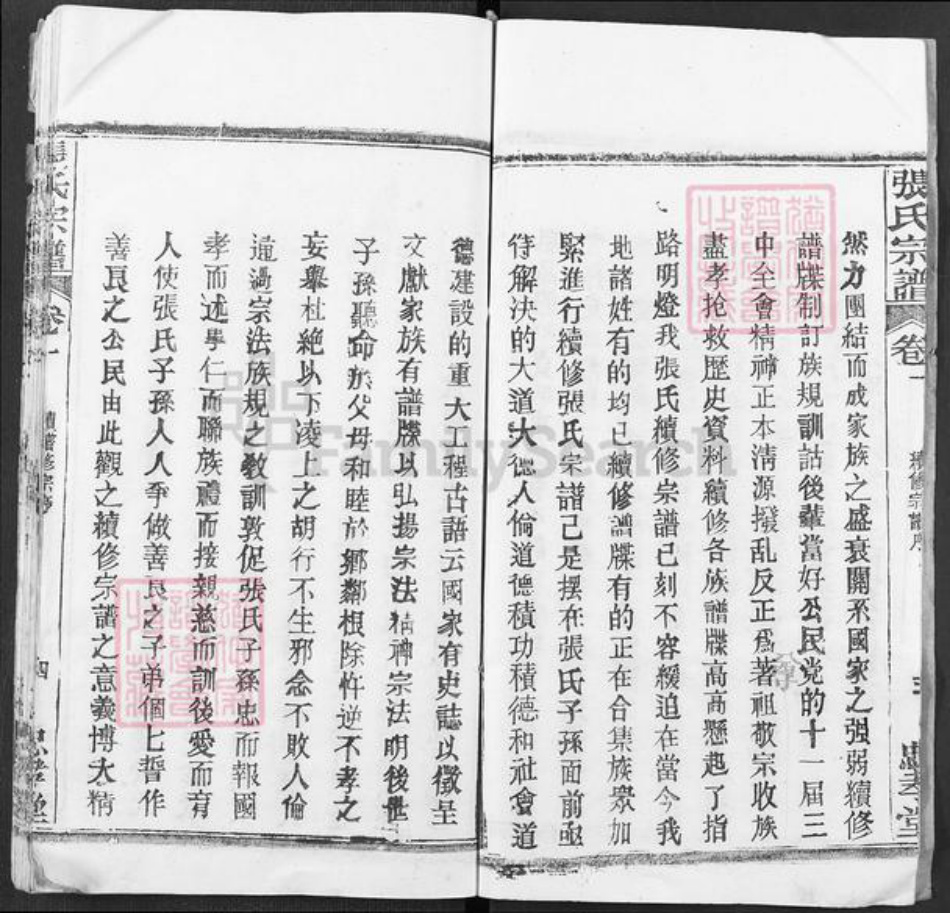 張氏宗譜
卷一
續修宗譜序
然力團結而成家族之盛衰關系國家之强弱續修
譜牒制訂族規訓詁後輩當好公民党的十一届三
中全會精神正本清源撥乱反正爲著祖敬宗收族
盡孝抢救歷史資料續修各族譜牒高高懸起了指
路明燈我張氏續修宗譜已刻不容緩迫在當今我
地諸姓有的均已續修譜牒有的正在合集族眾加
緊進行續修張氏宗譜己是摆在張氏子孫面前亟
待解决的大道大德人倫道德積功積德和社會道
德建設的重大工程古語云國家有史誌以徵呈
文獻家族有譜牒以弘揚宗法精神宗法明後世
子孫聽命於父母和睦於鄉鄰根除忤逆不孝之
妄舉杜絶以下凌上之胡行不生邪念不敗人倫
通過宗法族規之教訓敦促張氏子孫忠而報國
孝而述學仁而聯族禮而接親慈而訓後愛而育
人使張氏子孫人人争做善良之子弟個匕誓作
善良之公民由此觀之續修宗譜之意義博大精
張氏宗譜
卷一
四
FamilySearch